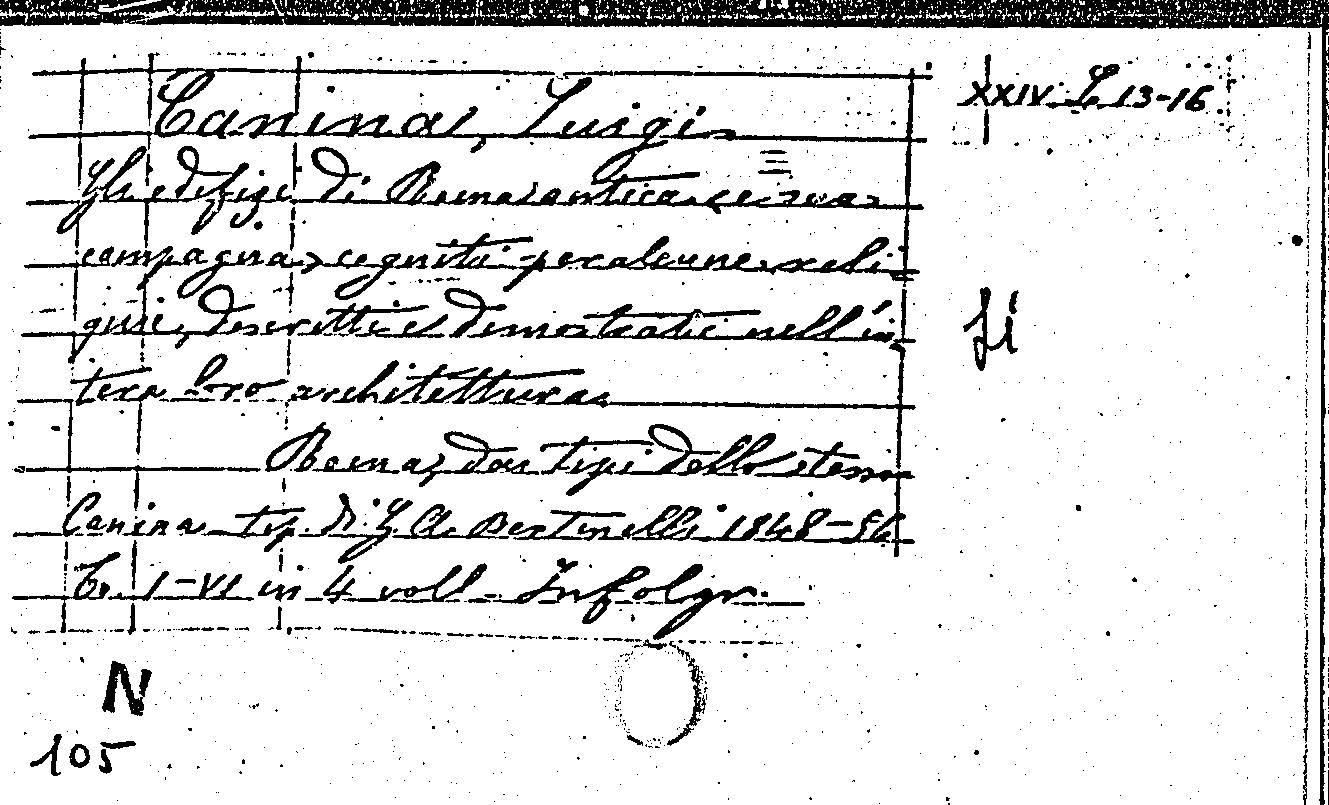 Canina, Luigi. XXIV. L. 13-16
Gli edifizi di Roma antica e sua
campagna, cogniti per alcune reli-
quie, descritti e dimostrati nell'in-
tera loro architettura.
Roma, dai tipi dello stesso
Canina tip. di G. A. Bertinelli 1848-56
T. I-VI in 4 voll. In fol gr.
Si
N
105